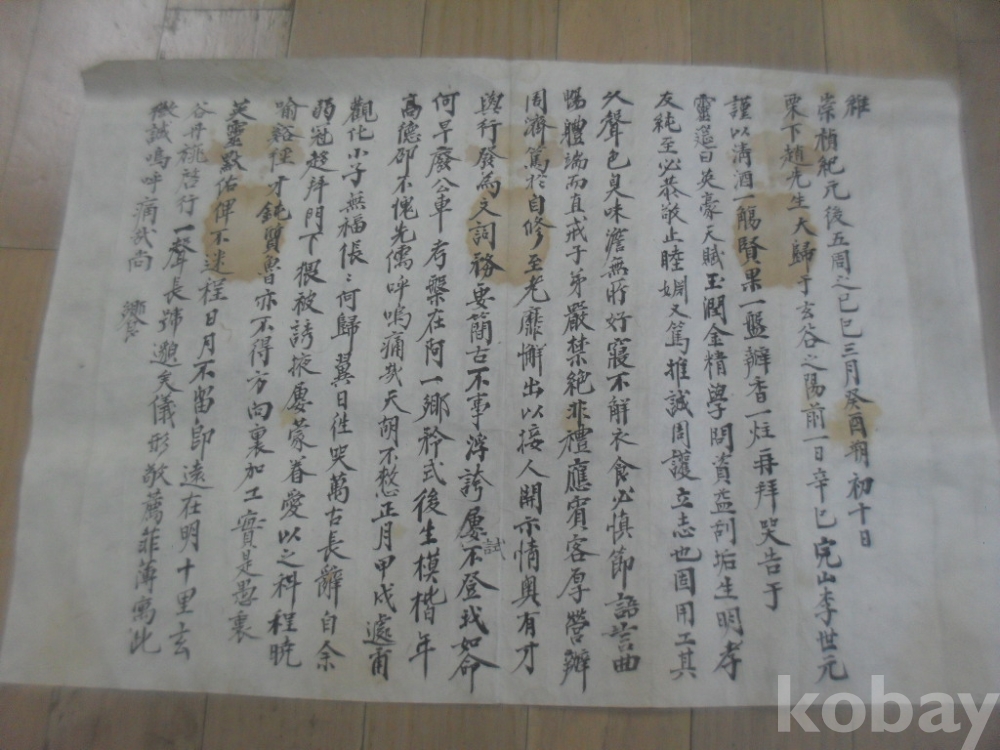 維
崇禎紀元後五周之己巳三月癸酉朔初十日
栗下趙先生大歸于玄谷之陽前一日辛巳完山李世元
謹以清酒一觴賢果一盤瓣香一炷再拜哭告于
靈筵曰英豪天賦玉潤金精學問資益刮垢生明孝
友純至必恭敬止睦婣又篤推誠周護立志也固用工其
久聲色臭味澹無所好寢不解衣食必慎節語言曲
暢體端而直戒子弟嚴禁絕非禮應賓客厚營辦
周濟篤於自修至老靡懈出以接人開示情奧有才
與行發為文詞務要簡古不事浮誇屢試不登我如命
何早廢公車考槃在阿一鄉矜式後生模楷年
高德邵不愧先儒呼嗚痛哉天胡不憖正月甲戌遽爾
觀化小子無福倀〻何歸翼日徃哭萬古長辭自余
弱冠趍拜門下猥被誘掖屢蒙眷愛以之科程曉
喻谿徑才鈍質魯亦不得方向裏加工實是愚衷
英靈默佑俾不迷程日月不留即遠在明十里玄
谷丹旐啓行一聲長號邈矣儀形敬薦菲薄寓此
微誠嗚呼痛哉尚
饗
kobay